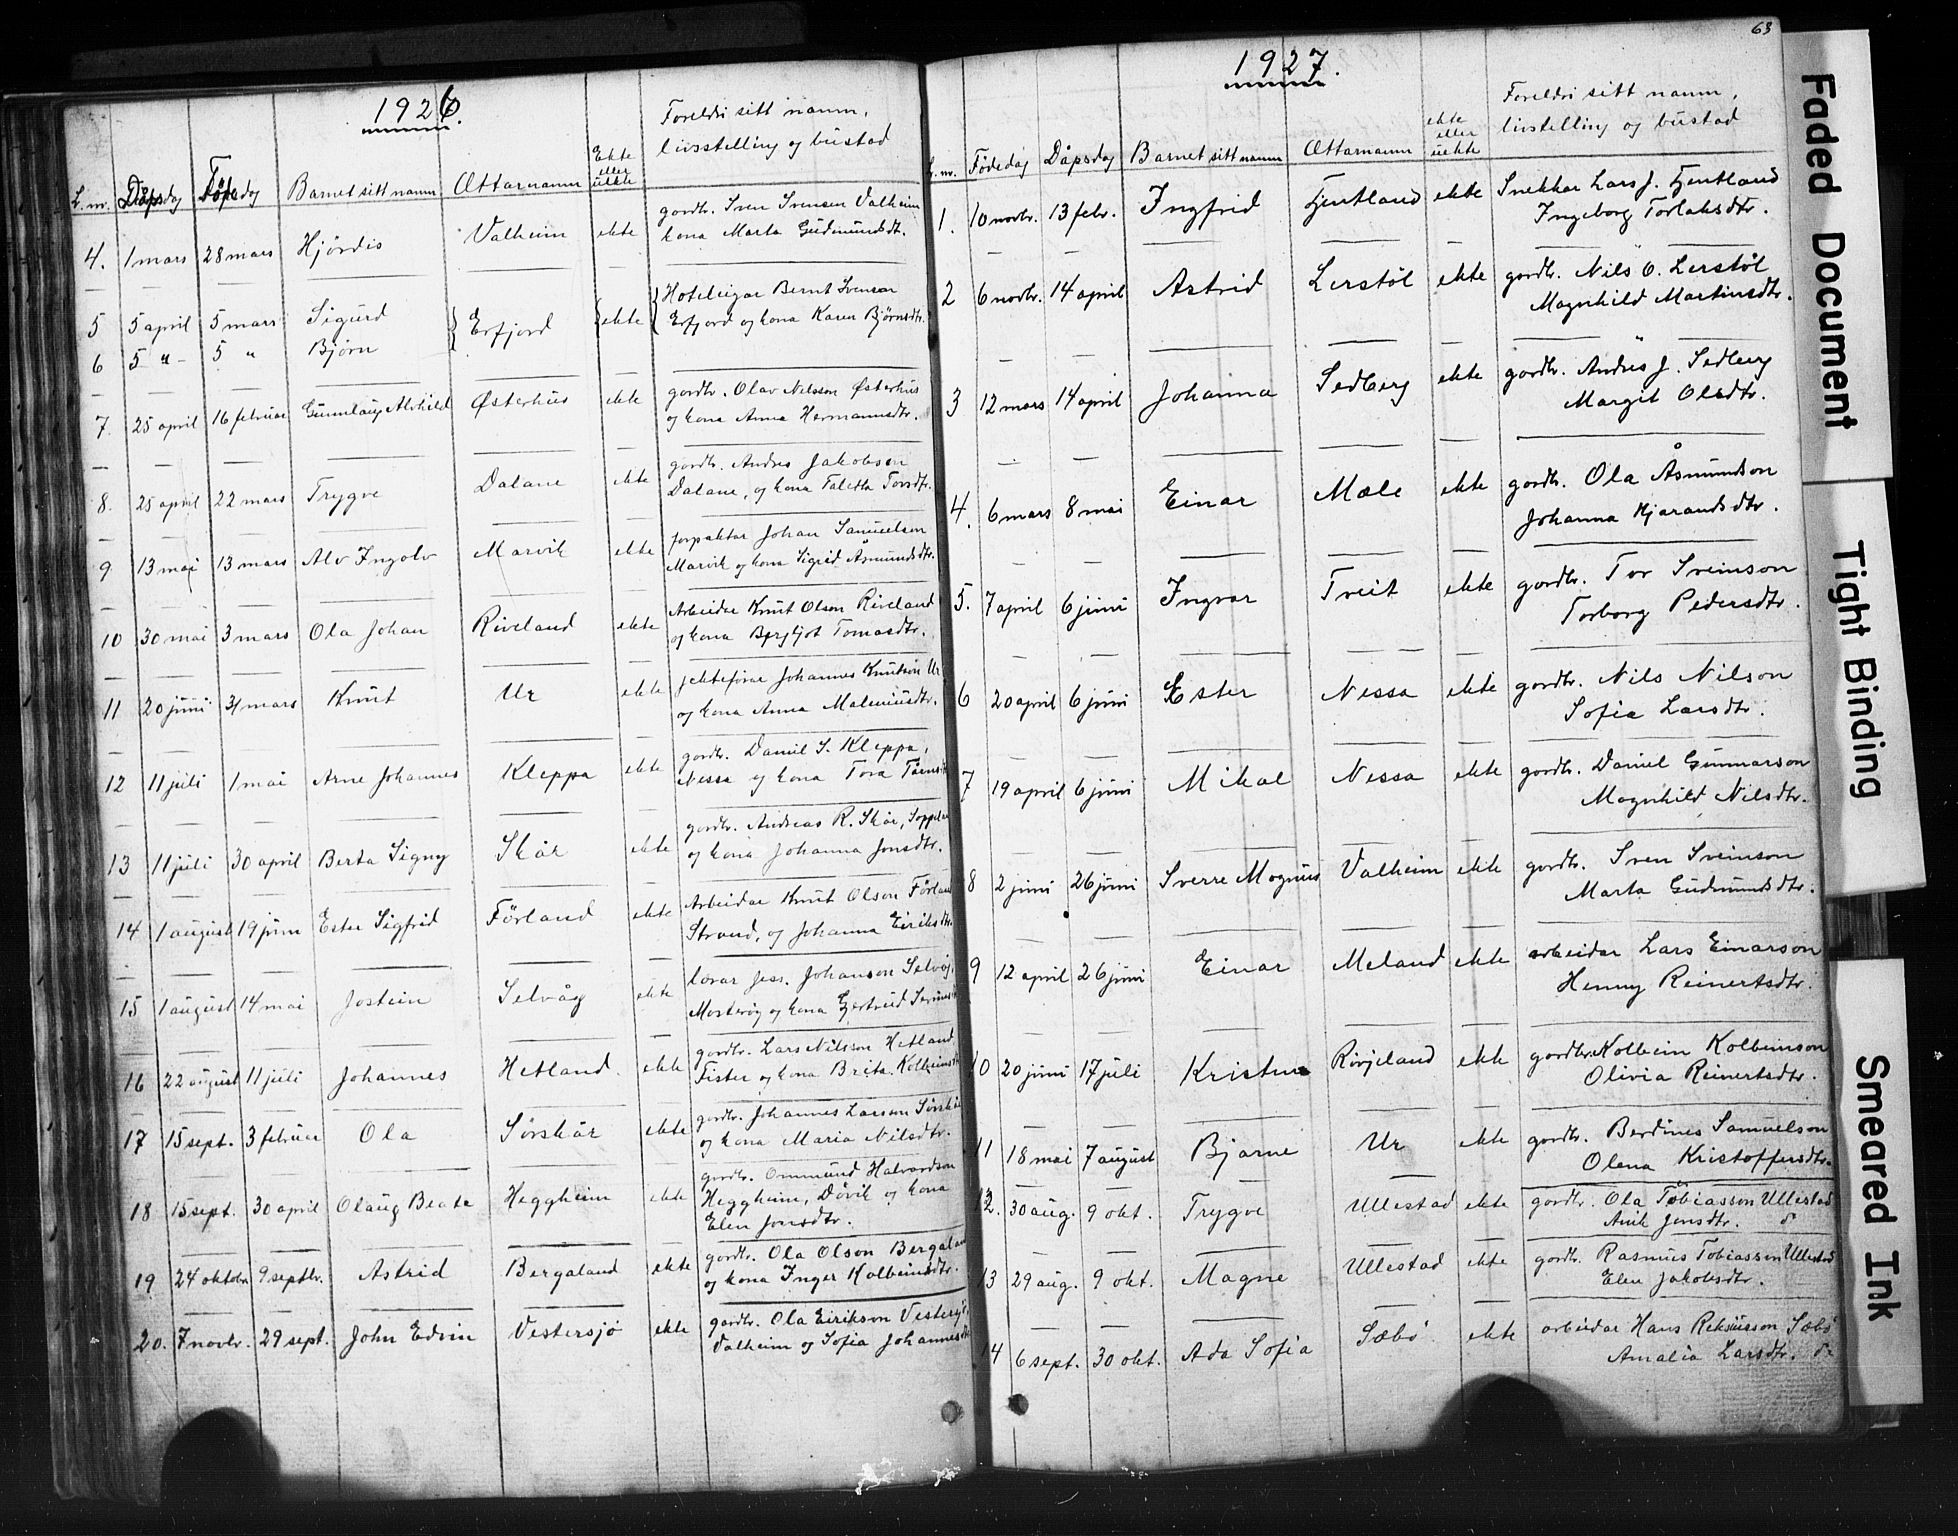 1926.
L. nr. Dåpsdag Fødedag Barnet sitt namn Ættarnamn Ekte eller uekte Foreldri sitt namn, livsstelling og bustad
4. 1 mars 28 mars Hjørdis Valheim ekte gardbr. Sven Svensen Valheim
kona Marta Gudmundsdt.
5 5 april 5 mars Sigurd Erfjord ekte Hoteleigar Bernt Svenson
6 5 " - 5 " Bjørn Erfjord og kona Karen Bjørnsdtr.
7. 25 april 16 februar Gunnlaug Alvhild Østerhus ekte gardbr. Olav Nilsson Østerhus
og kona Anna Hermannsdtr.
8. 25 april 22 mars Trygve Dalane ekte gardbr. Andres Jakobson
Dalane, og kona Taletta Torsdtr.
9 13 mai 13 mars Alv Ingolv Marvik ekte forpaktar Johan Samuelsen
Marvik og kona Sigrid Åsmundsdtr.
10 30 mai 3 mars Ola Johan Riveland ekte Arbeidar Knut Olson Riveland
og kona Bergljot Tomasdtr.
11 20 juni 31 mars Knut Ur ekte jekteførar Johannes Knutson Ur
og kona Anna Malenusdtr.
12 11 juli 1 mai Arne Johannes Kleppa ekte gardbr. Daniel S. Kleppa,
Nessa og kona Tora
13 11 juli 30 april Berta Signy Skår ekte gardbr. Andreas R. Skår,
og kona Johanna Jonsdtr.
14 1 august 19 juni Ester Sigfrid Førland ekte Arbeidar Knut Olson Førland
Strand, og Johanna Eiriksdtr.
15 1 august 14 mai Jostein Selvåg ekte lærar Jess. Johanson Selvåg,
Mosterøy og kona Gjertrud
16 22 august 11 juli Johannes Hetland ekte gardbr. Lars Nilsson Hetland,
Fister og kona Brita
17 15 sept. 3 februar Ola Sørskår ekte gardbr. Johannes Larson Sørskår
og kona Maria Nilsdtr.
18 15 sept. 30 april Olaug Beate Heggheim ekte gardbr. Ommund Halvardson
Heggheim, Døvik og kona
Elen Jonsdtr.
19 24 oktobr 9 septbr. Astrid Bergaland ekte gardbr. Ola Olson Bergaland
og kona Inger Kolbeinsdtr.
20. 7 novbr. 29 sept. John Edvin Vestersjø ekte gardbr. Ola Eirikson Vestersjø,
Valheim og Sofia Johannesdtr
63
1927.
L. nr. Fødedag Dåpsdag Barnet sitt namn Ættarnamn ekte eller uekte Foreldri sitt namn, livstelling og bustad
1. 10 novbr. 13 febr. Ingfrid Fjentland ekte Snekkar Lars J. Fjentland
Ingeborg Torlaksdtr.
2 6 novbr. 14 april Astrid Lerstøl ekte gardbr. Nils O. Lerstøl
Magnhild Martinsdtr.
3 12 mars 14 april Johanna Sedberg ekte gardbr. Andres J. Sedberg
Margit Olsdtr.
4. 6 mars 8 mai Einar Mæle ekte gardbr. Ola Åsmundson
Johanna Kjarandsdtr.
5. 7 april 6 juni Ingvar Tveit ekte gardbr. Tor Sveinson
Torborg Pedersdtr.
6 20 april 6 juni Ester Nessa ekte gardbr. Nils Nilson
Sofia Larsdtr.
7 19 april 6 juni Mikal Nessa ekte gardbr. Daniel Gunnarson
Magnhild Nilsdtr.
8 2 juni 26 juni Sverre Magnus Valheim ekte gardbr. Sven Sveinson
Marta Gudmundsdtr.
9 12 april 26 juni Einar Meland ekte arbeidar Lars Einarson
Henny Reinertsdtr.
10 20 juni 17 juli Kristine Røvjeland ekte gardbr. Kolbein Kolbeinson
Olivia Reinertsdtr.
11 18 mai 7 august Bjarne Ur ekte gardbr. Berdines Samuelson
Olena Kristoffersdtr.
12. 30 aug. 9 okt. Trygve Ullestad ekte gardbr. Ola Tobiasson Ullestad
Anik Jonsdtr.
13 29 aug. 9 okt. Magne Ullestad ekte gardbr. Rasmus Tobiasson Ullestad
Elen Jakobsdtr.
14 6 sept. 30 okt. Ada Sofia Sæbø ekte arbeidar Hans Sæbø
Amalia Larsdtr.
Faded Document
Tight Binding
Smeared Ink